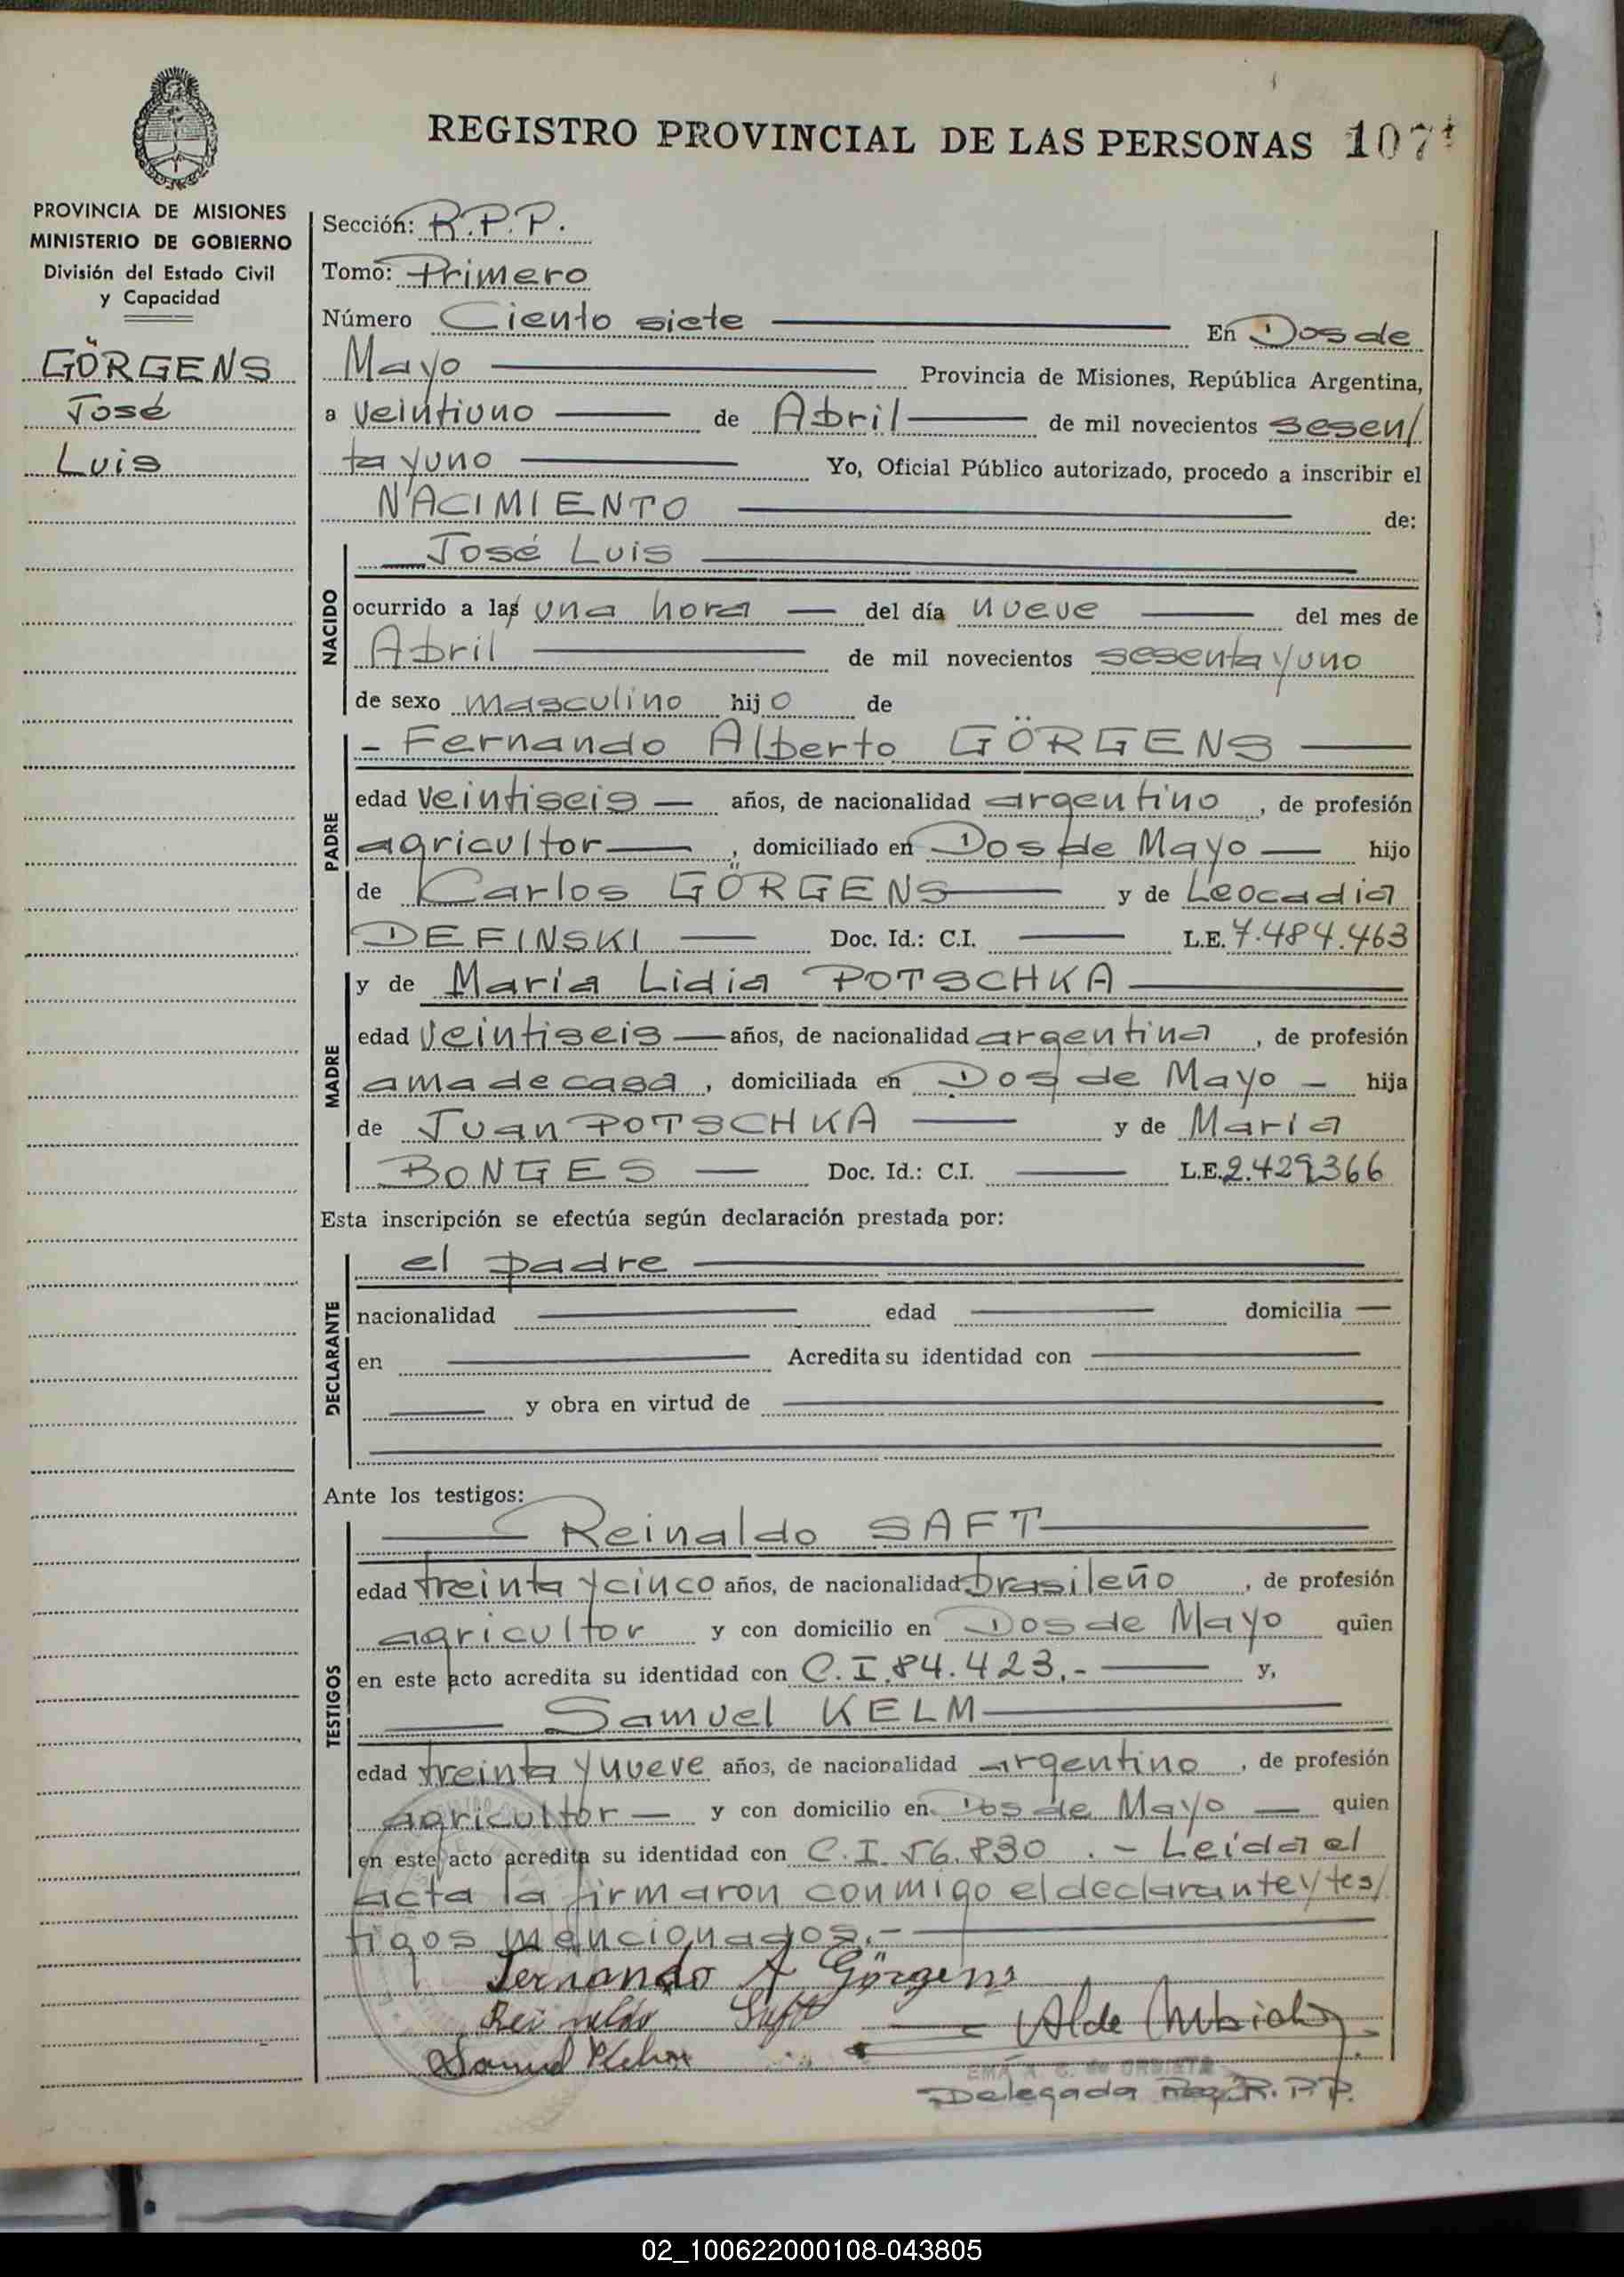 REGISTRO PROVINCIAL DE LAS PERSONAS 107
PROVINCIA DE MISIONES
MINISTERIO DE GOBIERNO
División del Estado Civil
y Capacidad
GÖRGENS
José
Luis
Sección: R.P.P.
Tomo: Primero
Número Ciento siete En Dos de
Mayo Provincia de Misiones, República Argentina,
a veintiuno de Abril de mil novecientos sesen/
ta y uno Yo, Oficial Público autorizado, procedo a inscribir el
NACIMIENTO de:
NACIDO
José Luis
ocurrido a las una hora del día nueve del mes de
Abril de mil novecientos sesenta y uno
de sexo masculino hijo de
PADRE
- Fernando Alberto GÖRGENS
edad veintiseis años, de nacionalidad argentino, de profesión
agricultor, domiciliado en Dos de Mayo hijo
de Carlos GÖRGENS y de Leocadia
DEFINSKI Doc. Id.: C.I. L.E. 7.484.463
MADRE
y de María Lidia POTSCHKA
edad veintiseis años, de nacionalidad argentina, de profesión
ama de casa, domiciliada en Dos de Mayo hija
de Juan POTSCHKA y de María
BONGES Doc. Id.: C.I. L.E. 2.429366
Esta inscripción se efectúa según declaración prestada por:
DECLARANTE
el padre
nacionalidad edad domicilia
en Acredita su identidad con
y obra en virtud de
Ante los testigos:
TESTIGOS
Reinaldo SAFT
edad treinta y cinco años, de nacionalidad brasileño, de profesión
agricultor y con domicilio en Dos de Mayo quien
en este acto acredita su identidad con C.I. 84.423.- y,
Samuel KELM
edad treinta y nueve años, de nacionalidad argentino, de profesión
agricultor y con domicilio en Dos de Mayo quien
en este acto acredita su identidad con C.I. 56.830. - Leída el
acta la firmaron conmigo el declarante y tes/
tigos mencionados.-
Fernando A Görgens
Reinaldo Saft
Samuel
Delegada Reg. R.P.P.
02_100622000108-043805